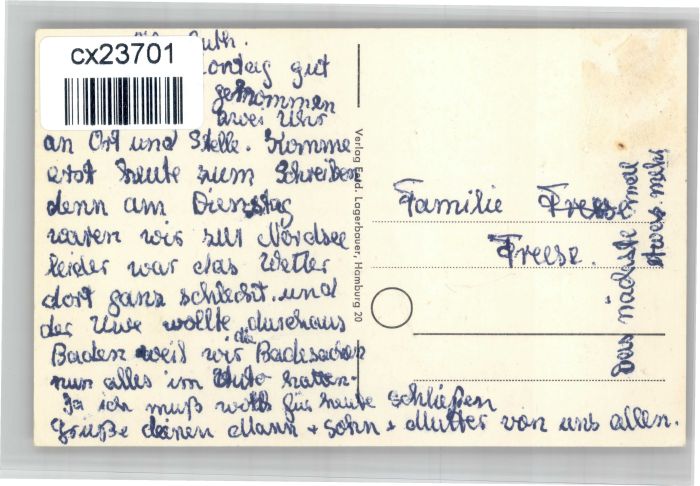 cx23701
Ruth.
Montag gut
gekommen
zwei Uhr
an Ort und Stelle. Komme
erst heute zum Schreiben
denn am Dienstag
waren wir zur Nordsee
leider war das Wetter
dort ganz schlecht. und
der Uwe wollte durchaus
Baden weil wir die Badesachen
nun alles im Auto hatten.
Ja ich muß wohl für heute schließen
Grüße deinen Mann + Sohn + Mutter von uns allen.
Verlag Ferd. Lagerbauer, Hamburg 20
Familie Freese
Freese.
Das nächste mal
etwas mehr